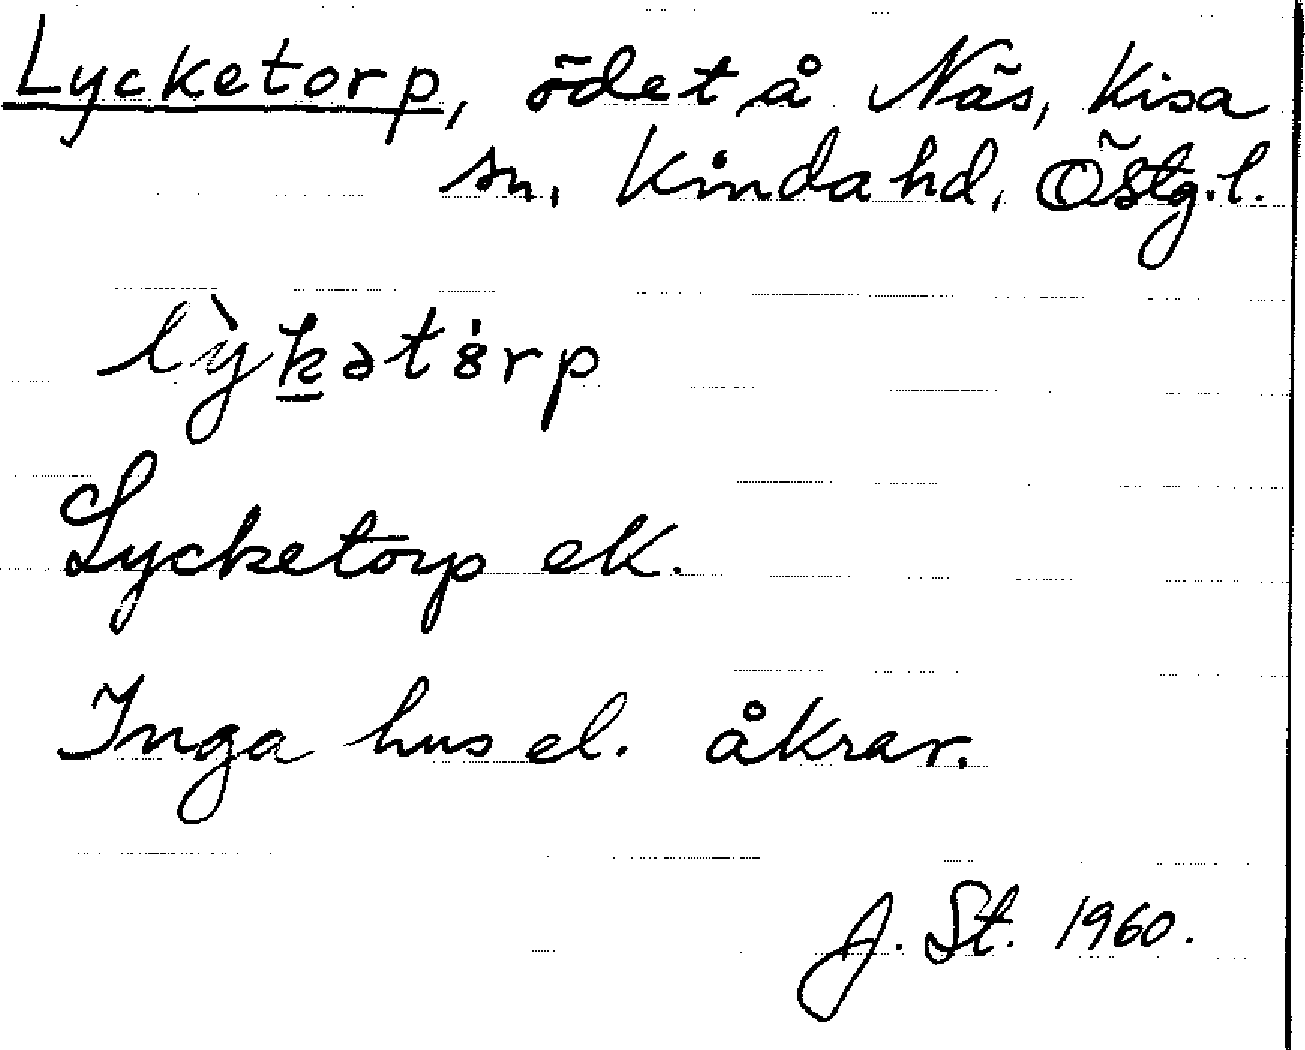 Lycketorp, ödet å Näs, Kisa
sn, Kinda hd, Östg.l.
Lycketorp ek.
Inga hus el. åkrar.
J. St. 1960.